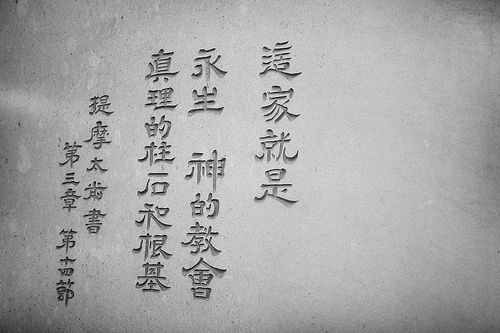 這家就是
永生　神的教會
真理的柱石和根基
提摩太前書
第三章　第十四節